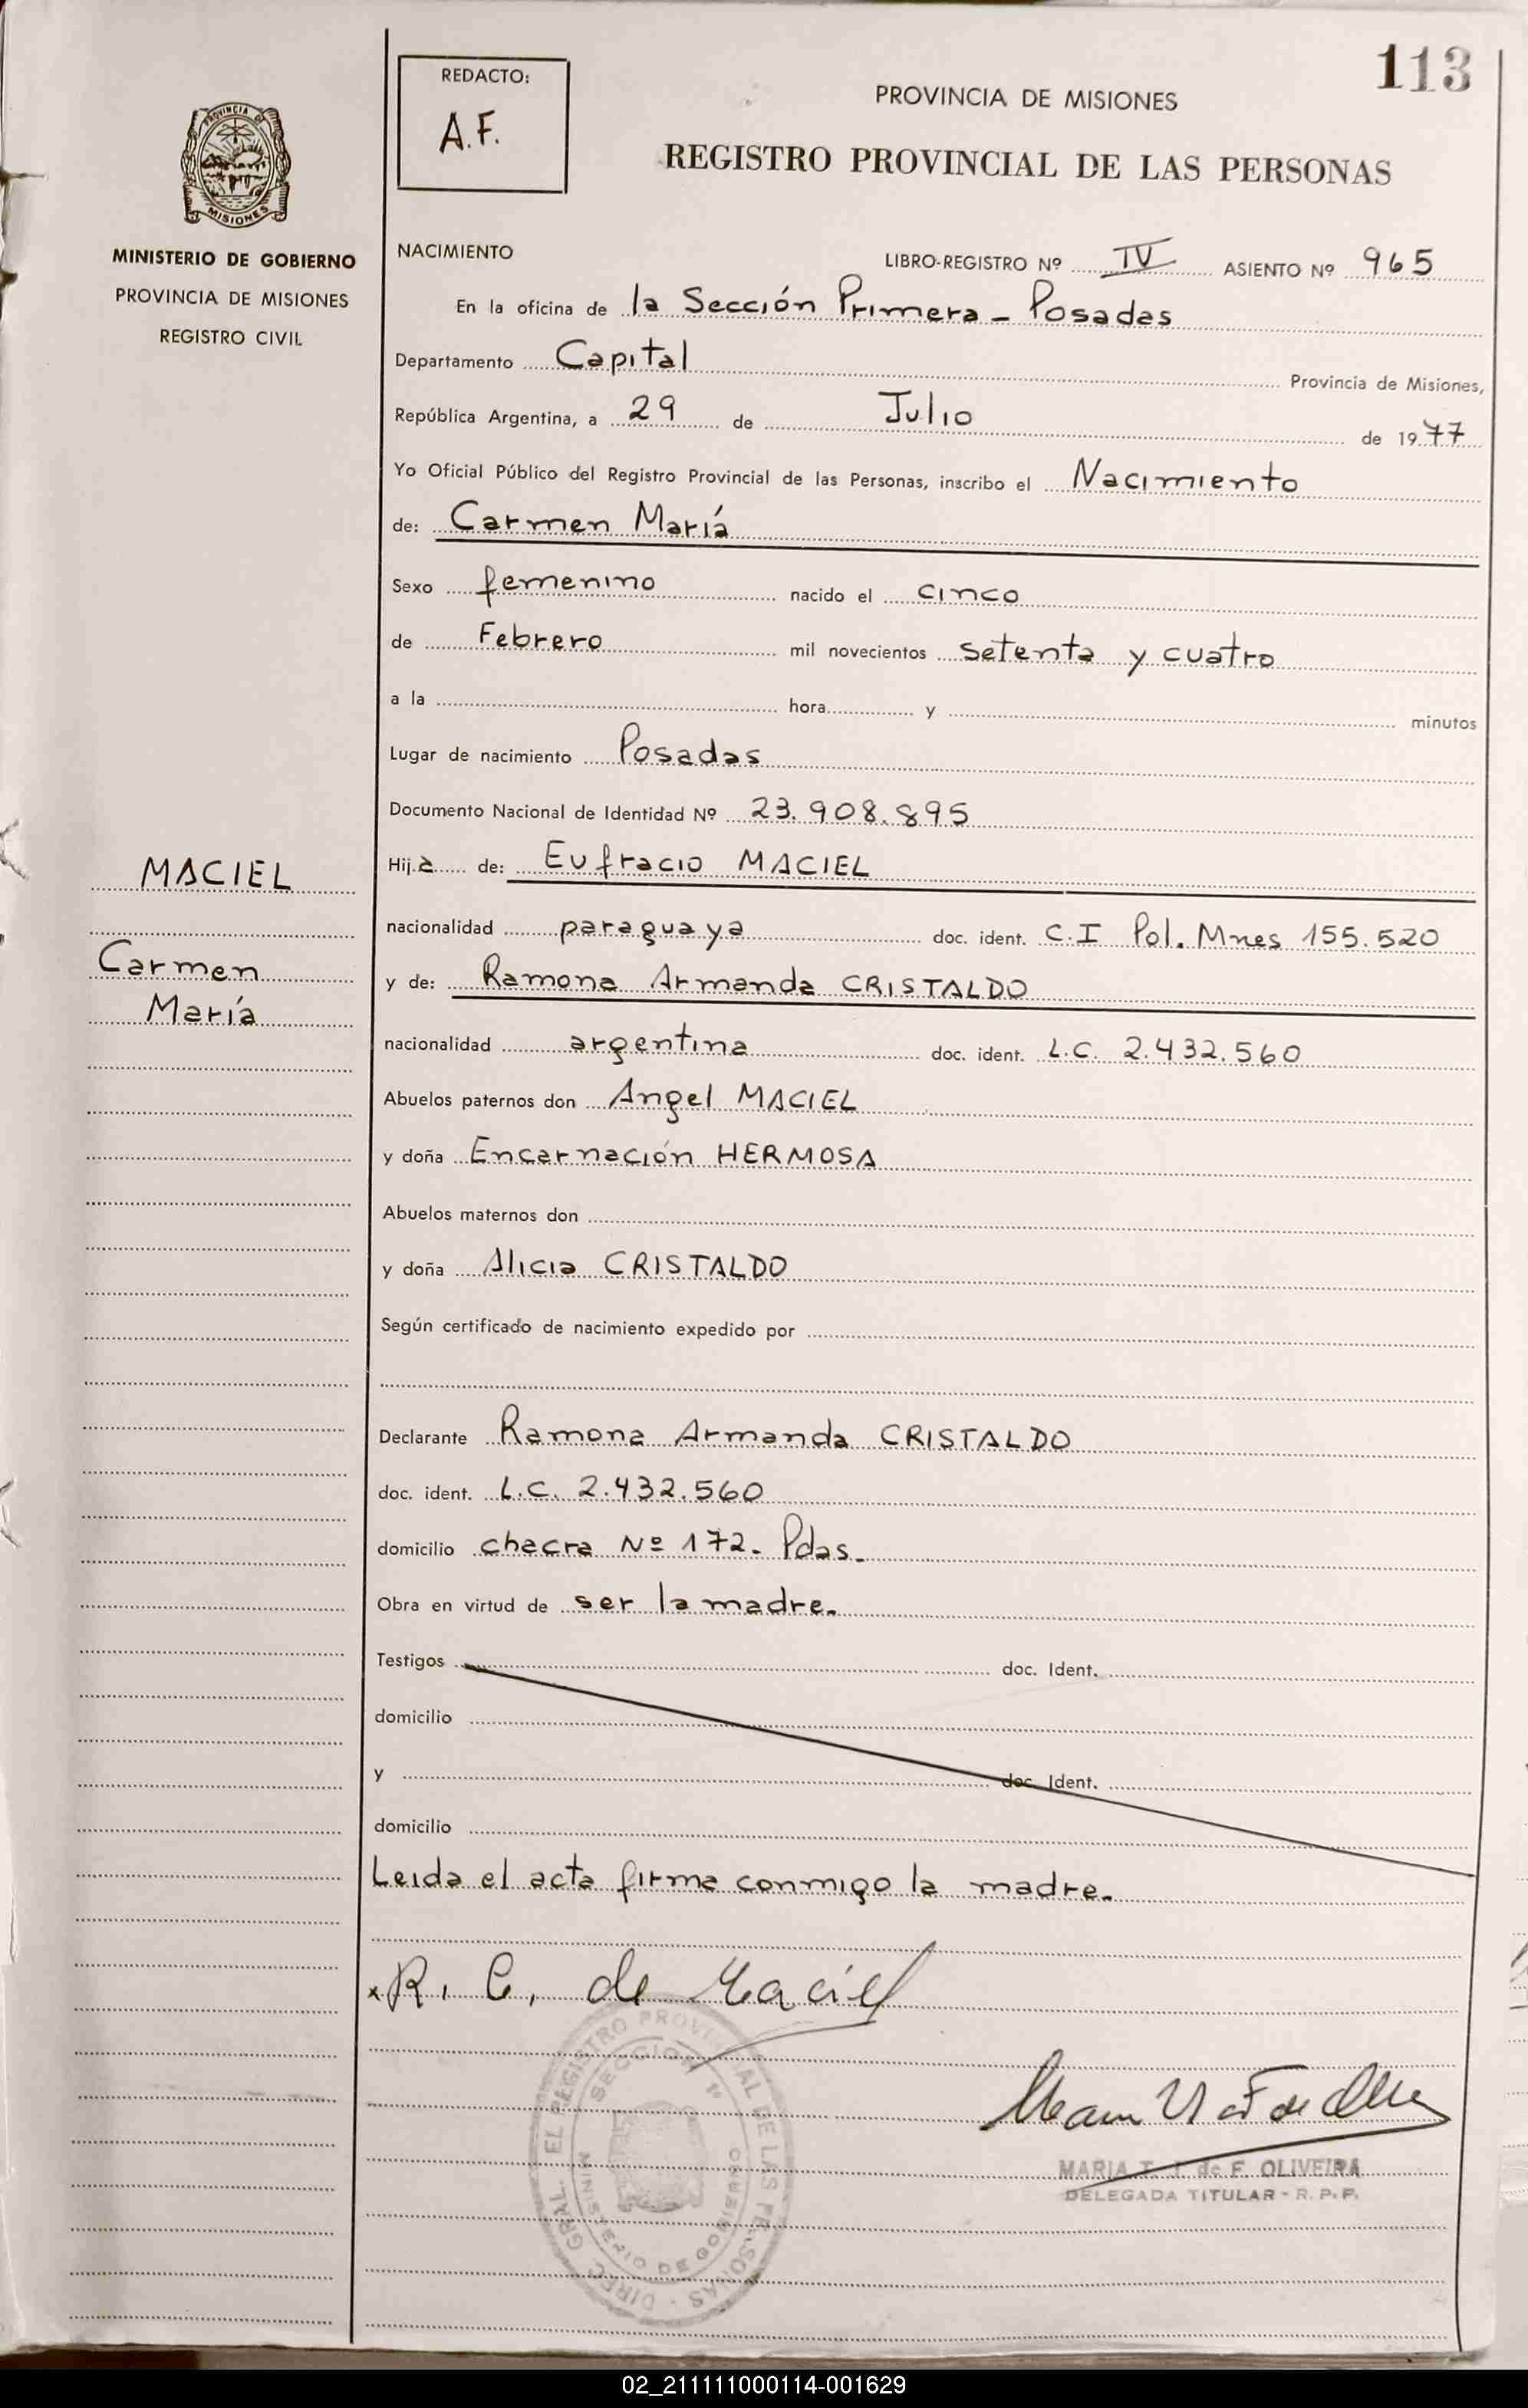 113
REDACTO:
A.F.
PROVINCIA DE MISIONES
REGISTRO PROVINCIAL DE LAS PERSONAS
PROVINCIA DE
MISIONES
MINISTERIO DE GOBIERNO
PROVINCIA DE MISIONES
REGISTRO CIVIL
NACIMIENTO
LIBRO-REGISTRO Nº IV ASIENTO Nº 965
En la oficina de la Sección Primera - Posadas
Departamento Capital Provincia de Misiones,
República Argentina, a 29 de Julio de 1977
Yo Oficial Público del Registro Provincial de las Personas, inscribo el Nacimiento
de: Carmen María
Sexo femenino nacido el cinco
de Febrero mil novecientos setenta y cuatro
a la hora y minutos
Lugar de nacimiento Posadas
Documento Nacional de Identidad Nº 23.908.895
MACIEL
Hija de: Eufracio MACIEL
nacionalidad paraguaya doc. ident. C.I Pol. Mnes 155.520
Carmen
María
y de: Ramona Armanda CRISTALDO
nacionalidad argentina doc. ident. L.C. 2.432.560
Abuelos paternos don Angel MACIEL
y doña Encarnación HERMOSA
Abuelos maternos don
y doña Alicia CRISTALDO
Según certificado de nacimiento expedido por
Declarante Ramona Armanda CRISTALDO
doc. ident. L.C. 2.432.560
domicilio chacra Nº 172. Pdas.
Obra en virtud de ser la madre.
Testigos doc. Ident.
domicilio
y doc. Ident.
domicilio
Leida el acta firma conmigo la madre.
x R. C. de Maciel
DIREC. GRAL. EL REGISTRO PROVINCIAL DE LAS PERSONAS
SECCION 1ª
MINISTERIO DE GOBIERNO
MARIA T. J. de F. OLIVEIRA
DELEGADA TITULAR - R. P. P.
02_211111000114-001629